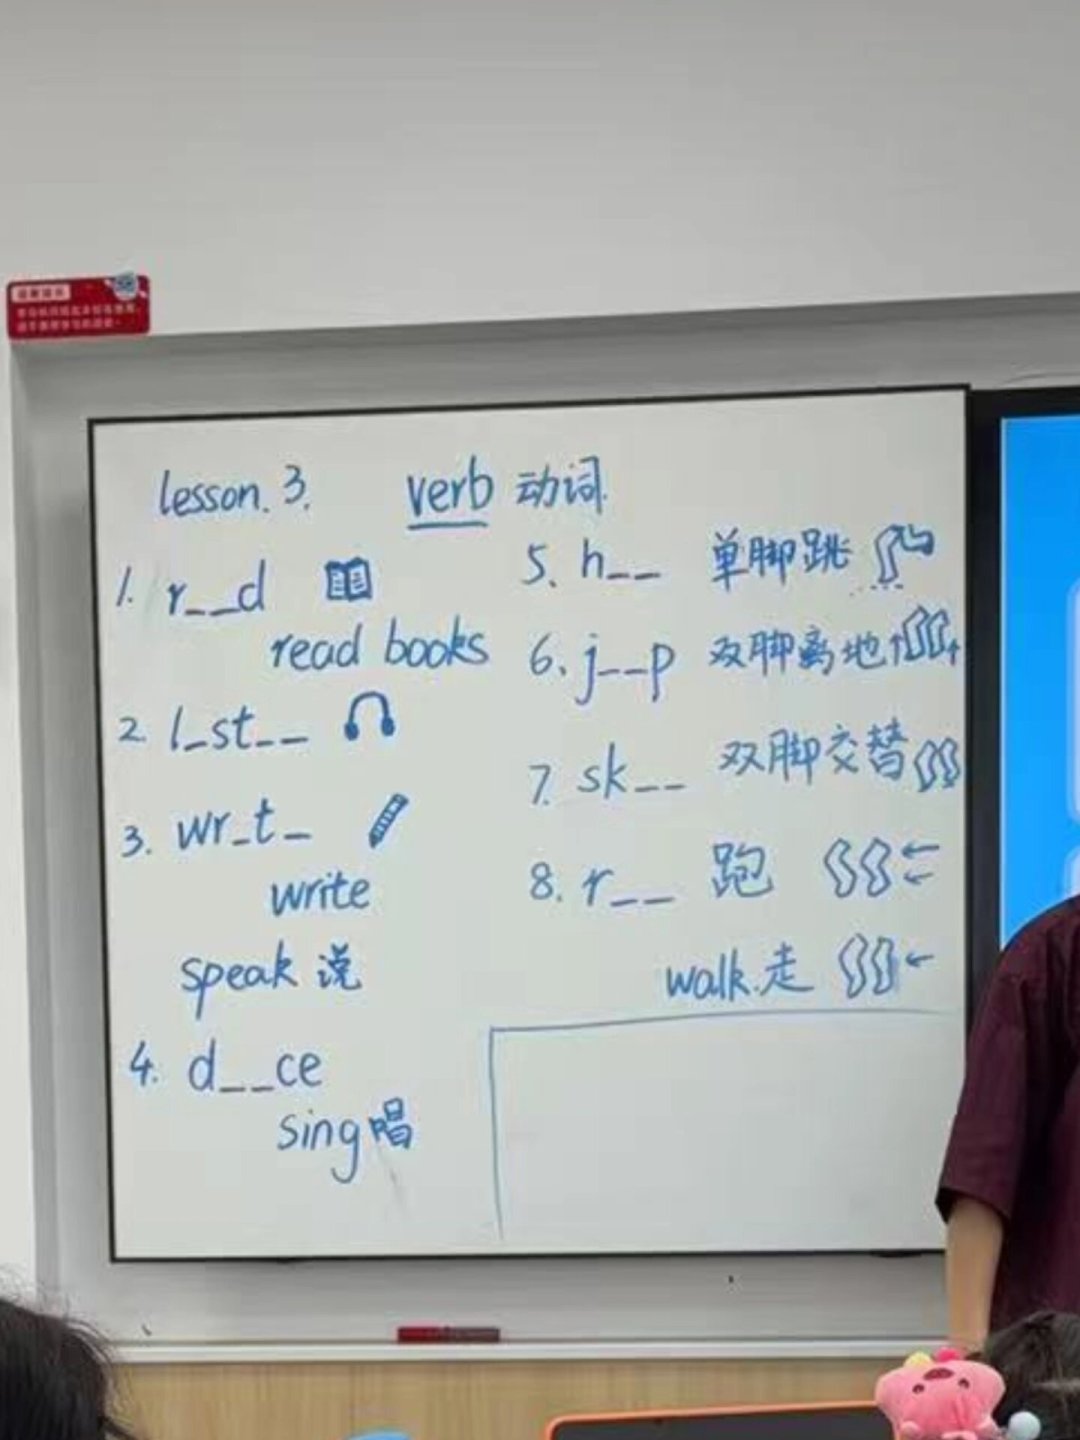 lesson.3. verb 动词
1. r__d
read books
2. l_st__
3. wr_t_
write
speak 说
4. d__ce
sing 唱
5. h__ 单脚跳
6. j__p 双脚离地
7. sk__ 双脚交替
8. r__ 跑
walk.走